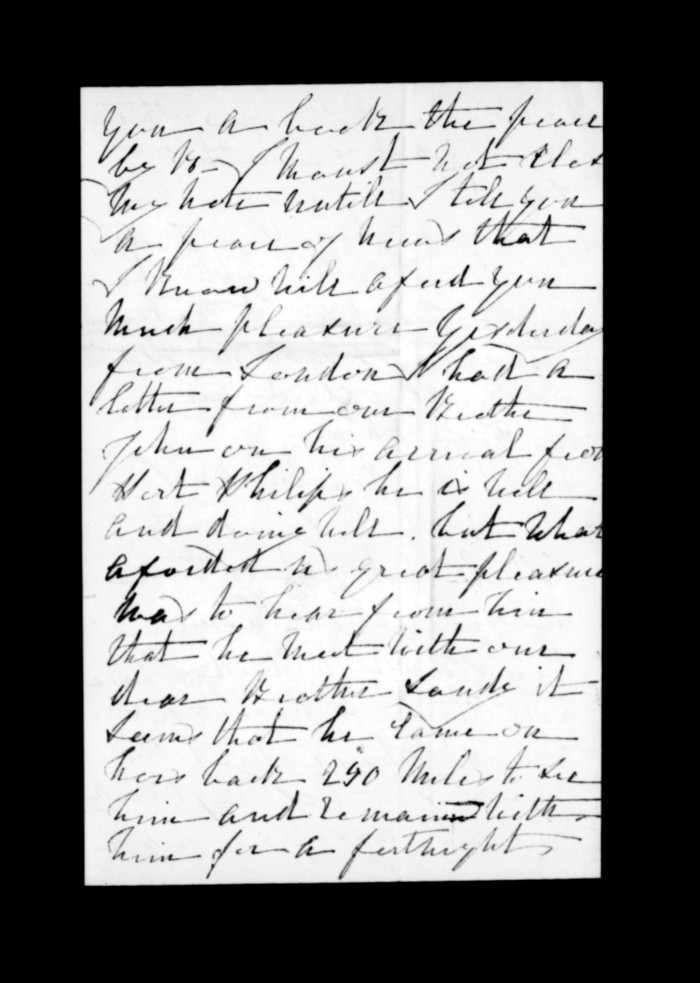 you a back the peace
by B - I moust not Clos
my note untill I tell you
a peace of news that
I know will aford you
much pleasure Yesterday
from London I had a
letter from our Brother
John on his arrival from
Port Philip, he is well
and doing well. but what
aforded us great pleasure
was to hear from him
that he met with our
dear Brother Sandy it
seems that he came on
hors back 290 Miles to see
him and remained with
him for a fortnight